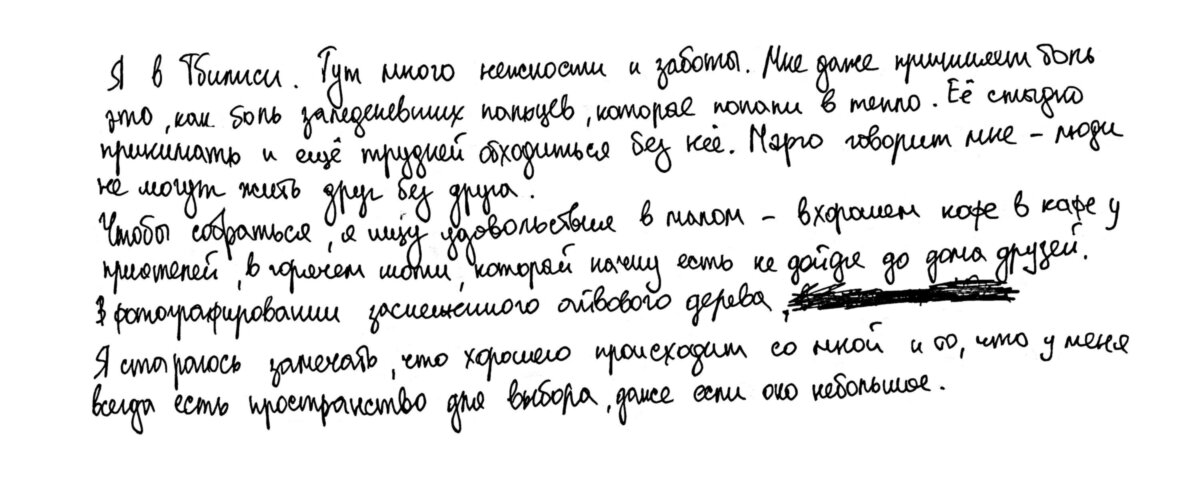 Я в Тбилиси. Тут много нежности и заботы. Мне даже причиняет боль
это, как боль заледеневших пальцев, которые попали в тепло. Её стыдно
принимать и ещё трудней обходиться без неё. Марго говорит мне – люди
не могут жить друг без друга.
Чтобы собраться, я ищу удовольствия в малом – в хорошем кофе в кафе у
приятелей, в горячем шоти, который начну есть не дойдя до дома друзей.
В фотографировании заснеженного айвового дерева,
Я стараюсь замечать, что хорошего происходит со мной и то, что у меня
всегда есть пространство для выбора, даже если оно небольшое.